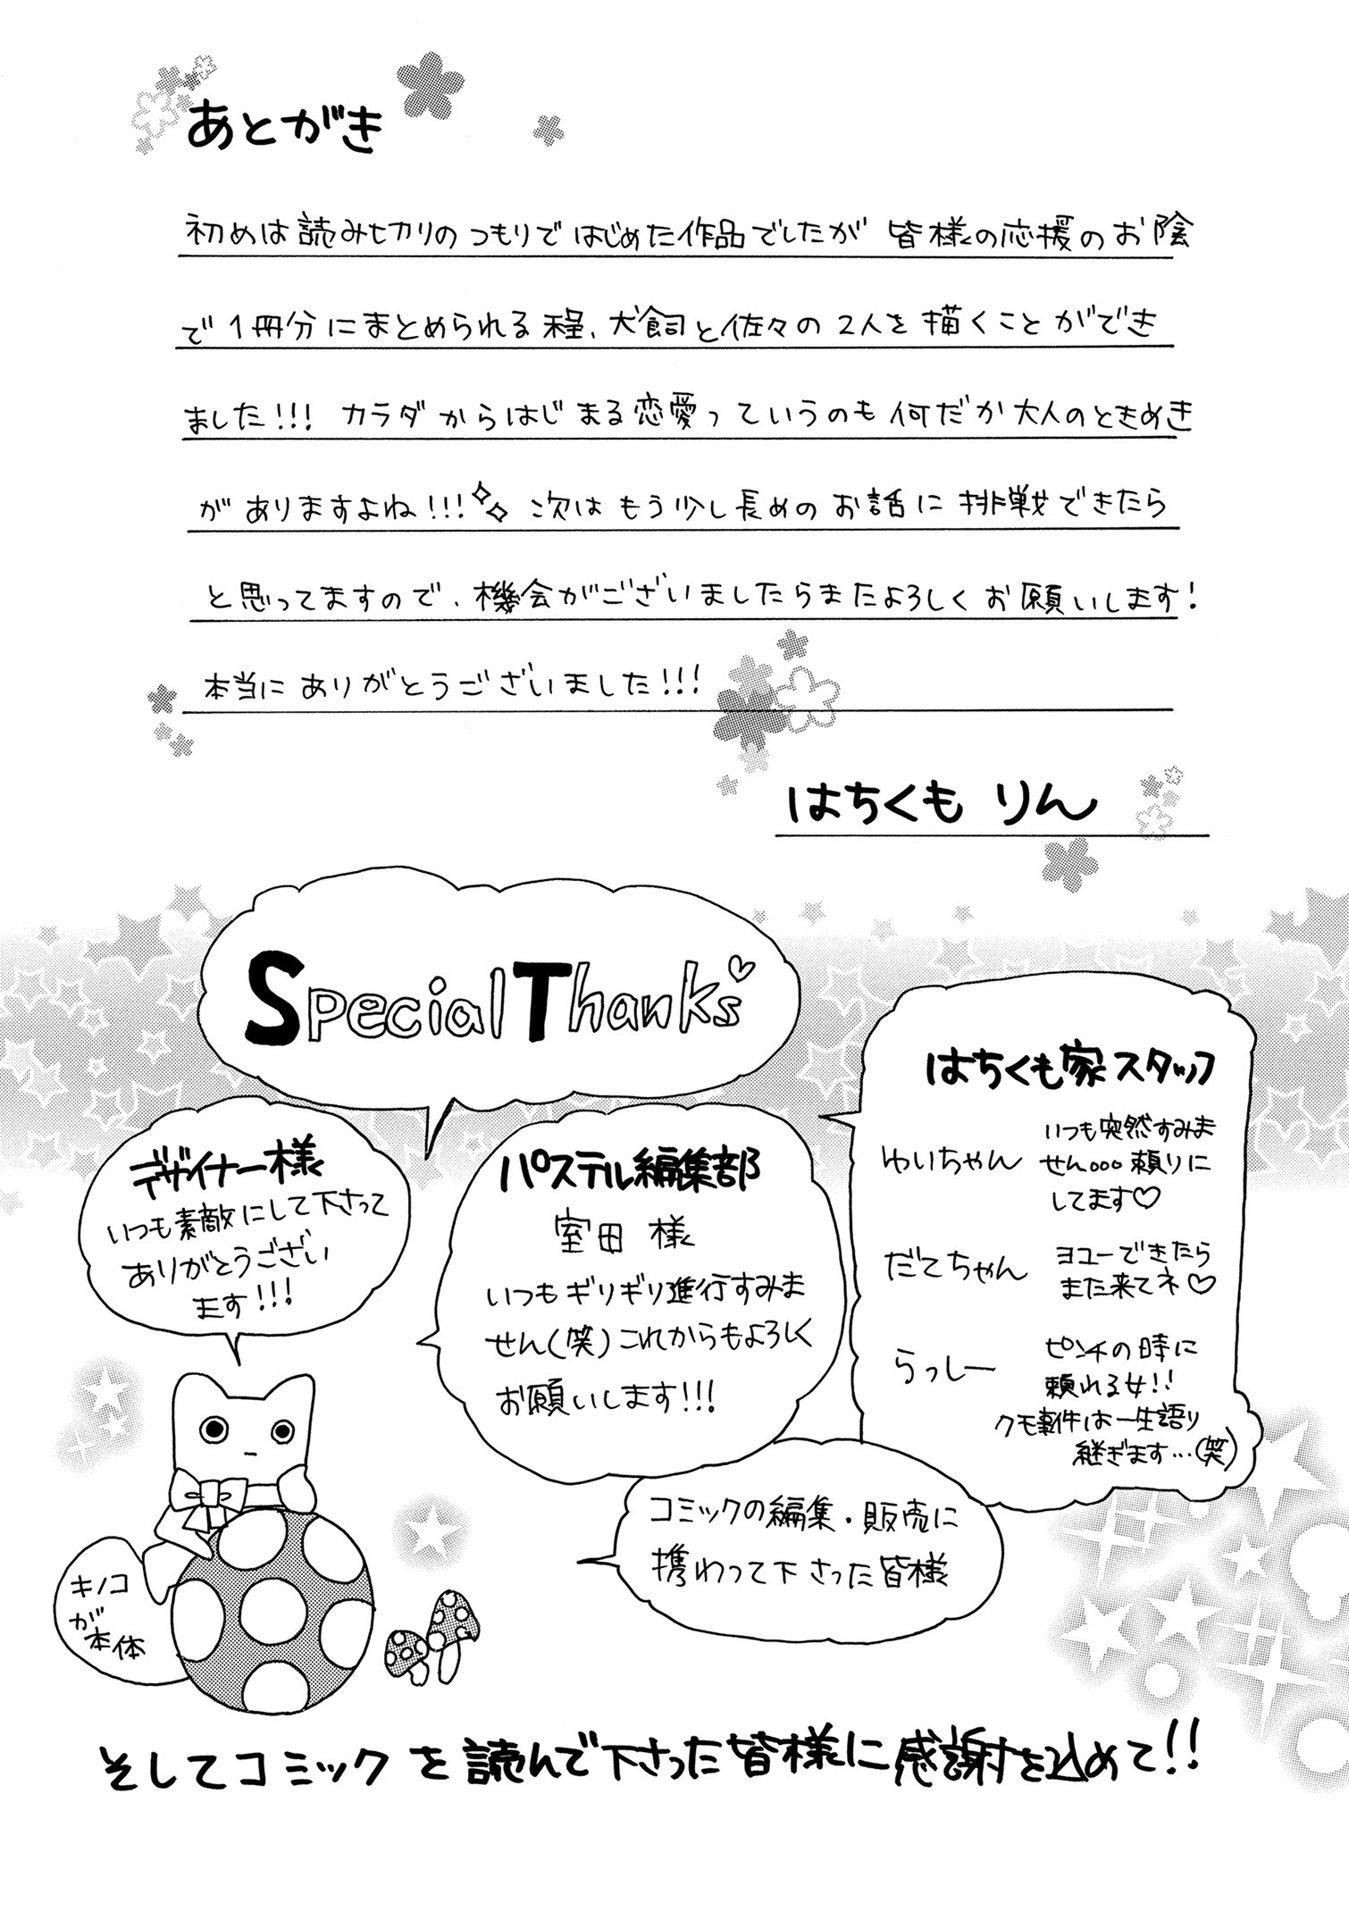 あとがき
初めは読みヒカリのつもりではじめた作品でしたが 皆様の応援のお陰
で1冊分にまとめられる程、犬飼と佐々の2人を描くことができ
ました!!! カラダからはじまる恋愛っていうのも何だか大人のときめき
がありますよね!!! 次はもう少し長めのお話に挑戦できたら
と思ってますので、機会がございましたらまたよろしくお願いします!
本当にありがとうございました!!!
はちくも りん
Special Thanks♡
はちくも家スタッフ
ゆいちゃん
いつも突然すみま
せん。。。頼りに
してます♡
だてちゃん
ヨユーできたら
また来てネ♡
らっしー
ピンチの時に
頼れる女!!
クモ事件は一生語り
継ぎます…(笑)
パステル編集部
室田 様
いつもギリギリ進行すみま
せん(笑)これからもよろしく
お願いします!!!
デザイナー様
いつも素敵にして下さって
ありがとうござい
ます!!!
コミックの編集・販売に
携わって下さった皆様
キノコ
が
本体
そしてコミックを読んで下さった皆様に感謝を込めて!!